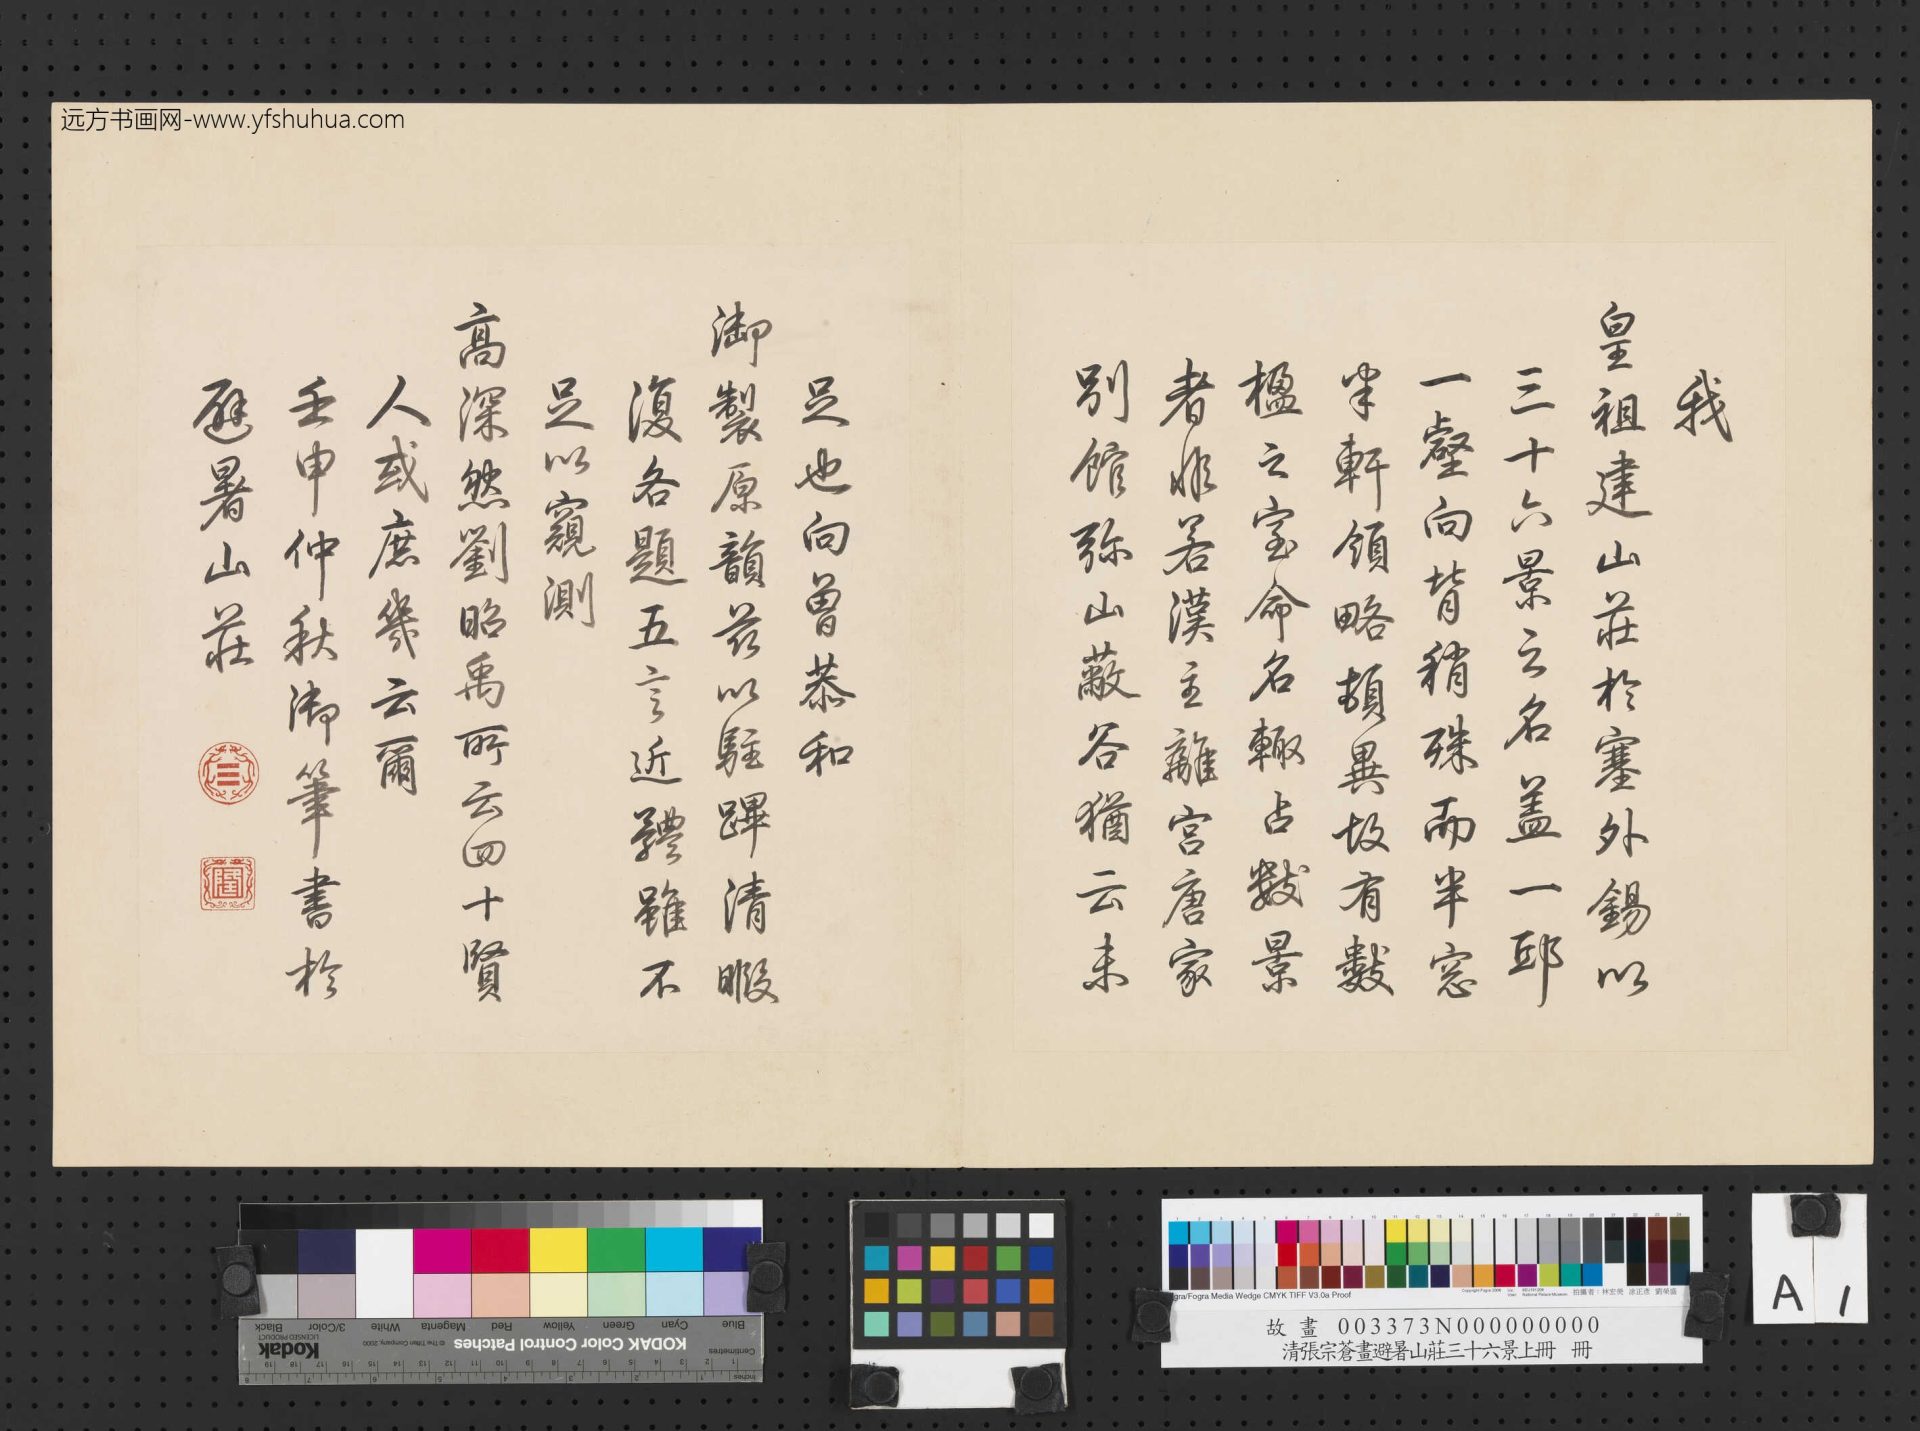 远方书画网-www.yfshuhua.com
我
皇祖建山莊於塞外錫以
三十六景之名蓋一邱
一壑向背稍殊而半窓
半軒領略頓異故有數
楹之室命名輙占數景
者非若漢主離宮唐家
別館弥山蔽谷猶云未
足也向曾恭和
御製原韻茲以駐蹕清暇
復各題五言近體雖不
足以窺測
高深然劉昭禹所云四十賢
人或庶幾云爾
壬申仲秋御筆書於
避暑山莊
Blue Cyan Green Yellow Red Magenta White 3/Color Black
KODAK Color Control Patches
© The Tiffen Company, 2000
Kodak
LICENSED PRODUCT
Centimetres
Inches
gra/Fogra Media Wedge CMYK TIFF V3.0a Proof
故畫 003373N000000000
清張宗蒼畫避暑山莊三十六景上冊 冊
A 1